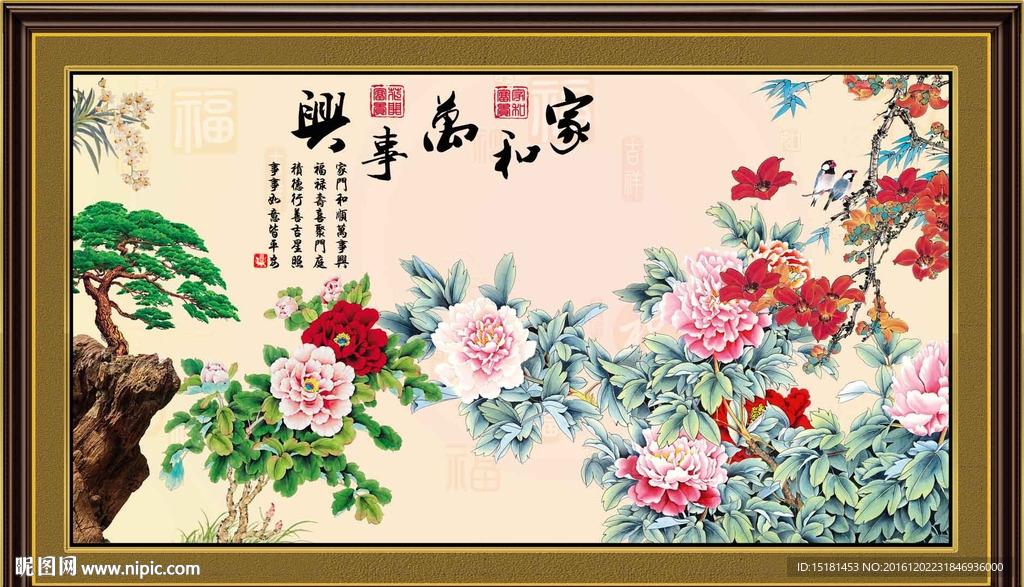 家和萬事興
家和富貴
花開富貴
家門和順萬事興
福祿壽喜聚門庭
積德行善吉星照
事事如意皆平安
福
吉祥
福
昵图网 www.nipic.com
ID:15181453 NO:20161202231846936000